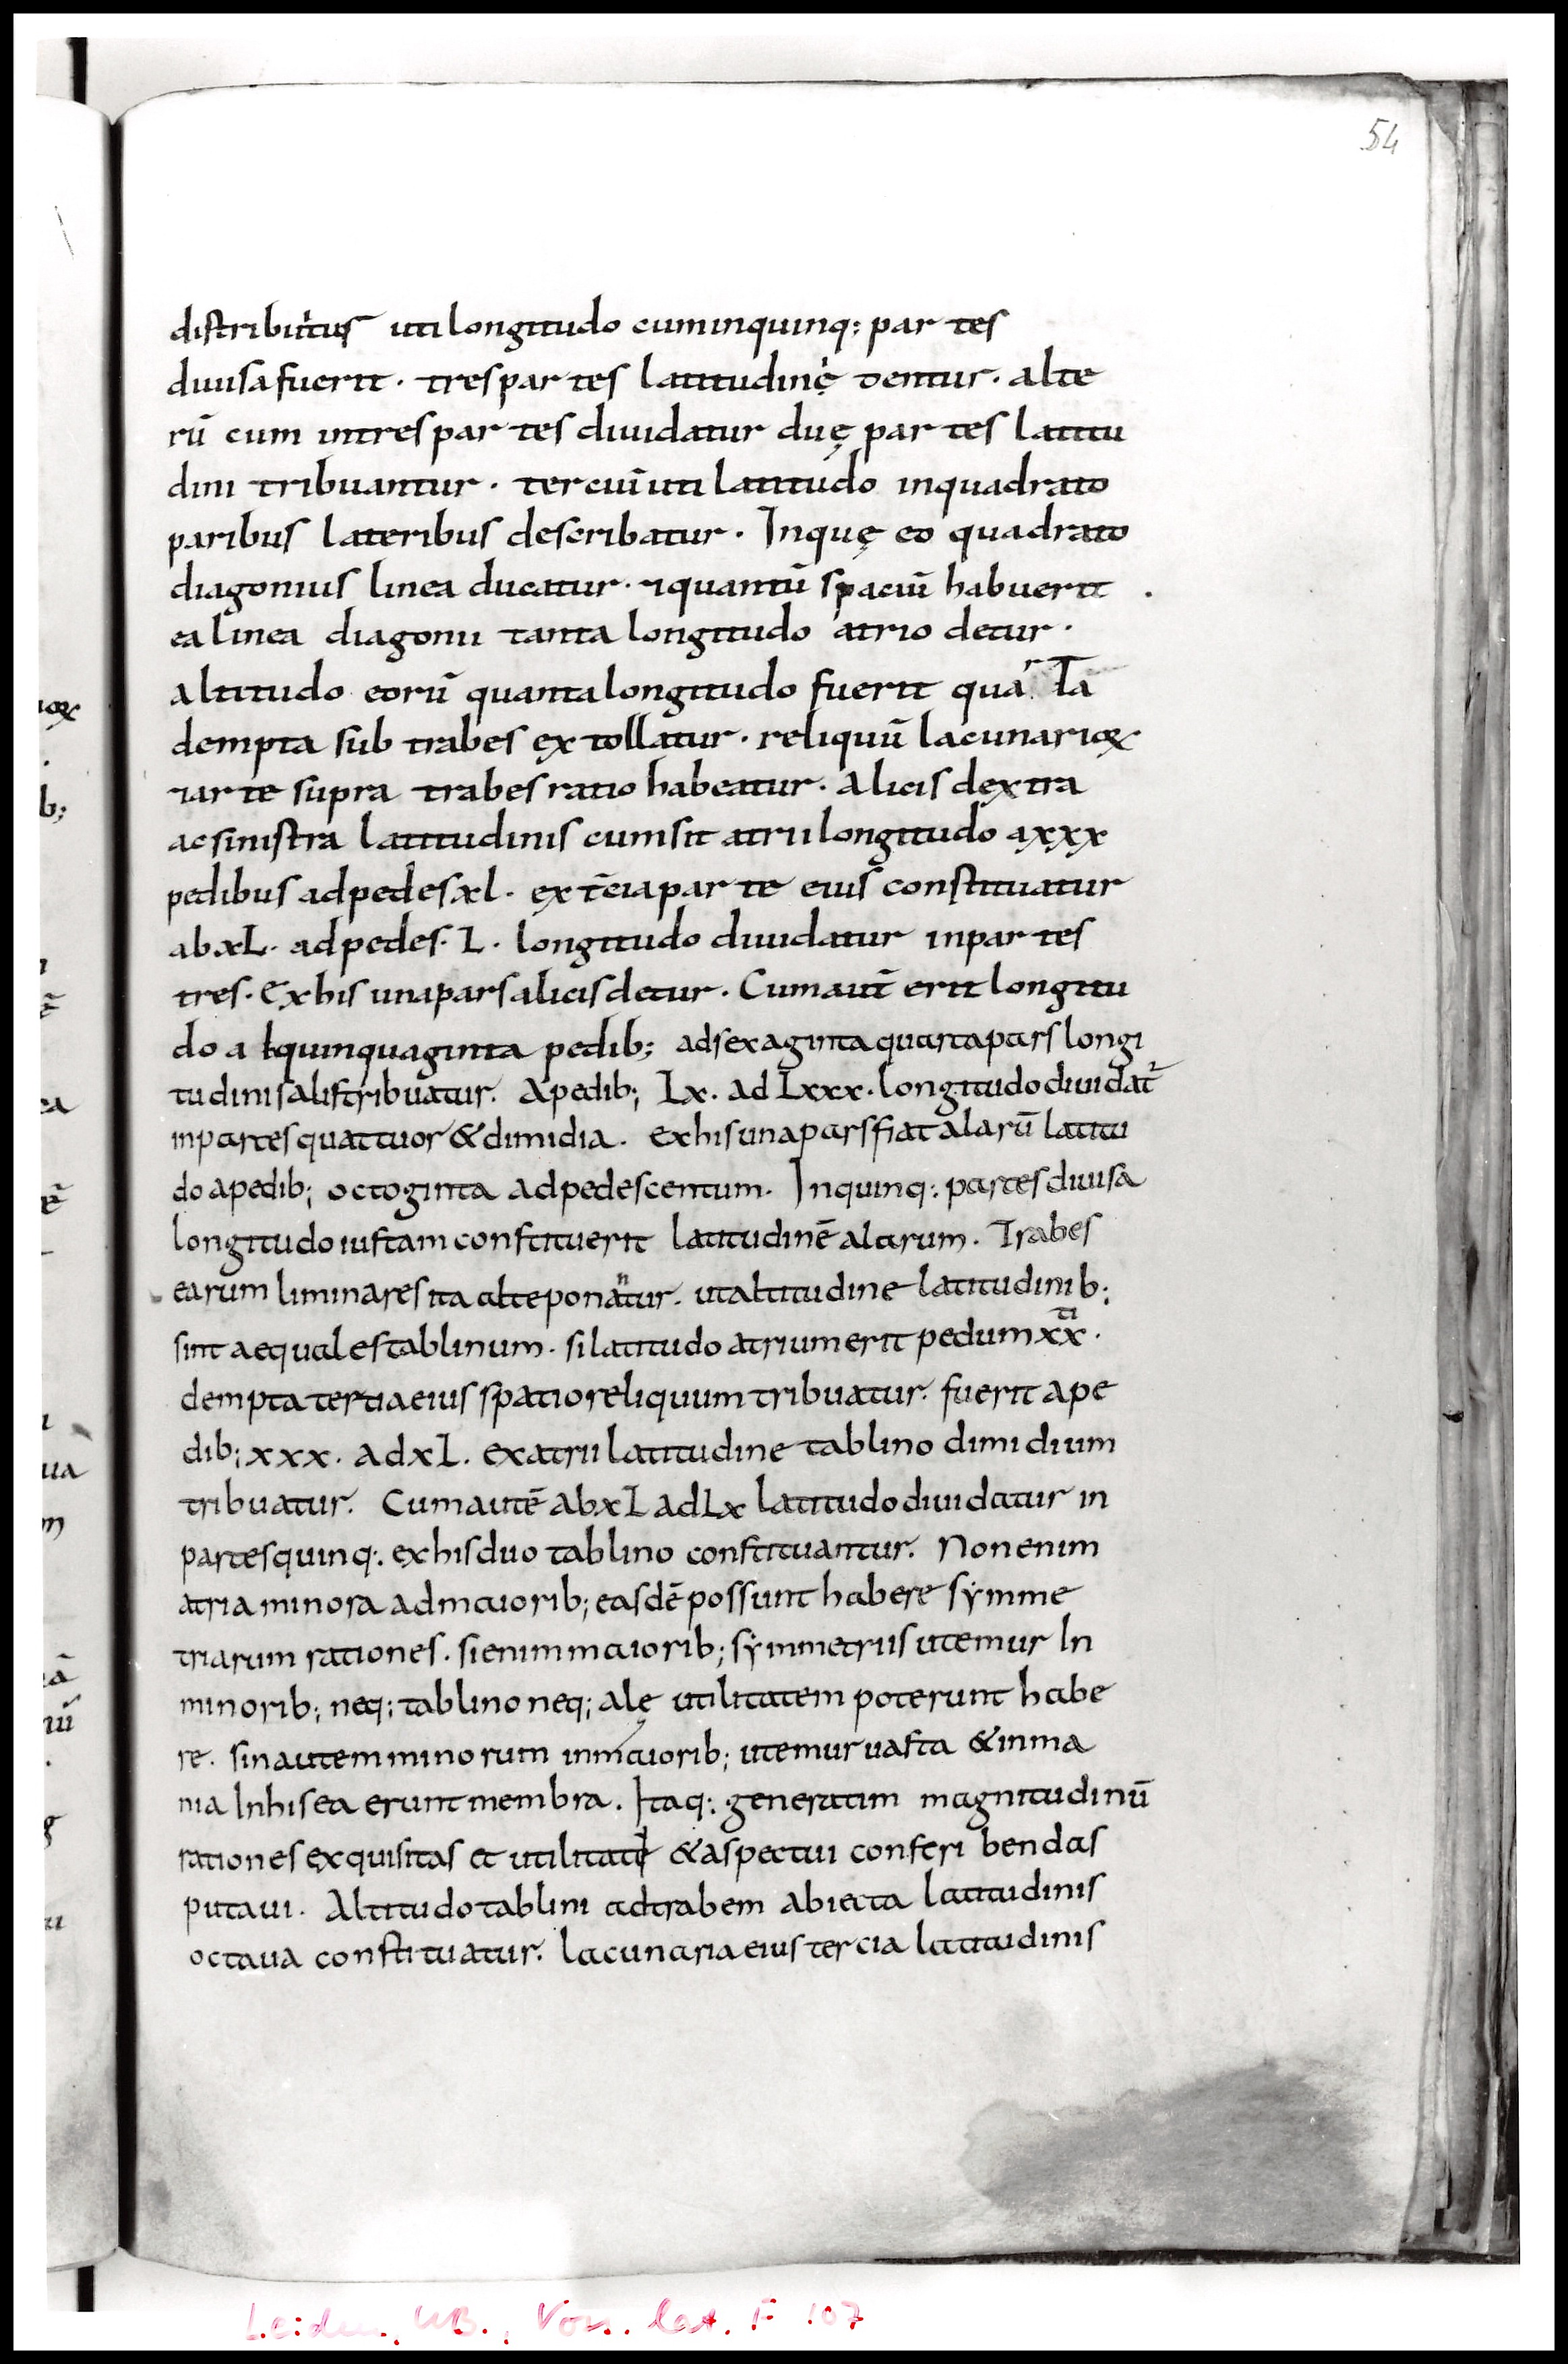 54
distributus uti longitudo cum in quinq; partes
diuisa fuerit · tres partes latitudinę dentur · alte
rū cum in tres partes diuidatur duę partes latitu
dini tribuantur · terciū uti latitudo in quadrato
paribus lateribus describatur · Inquę eo quadrato
diagonius linea ducatur · ⁊ quantū spaciū habuerit
ea linea diagonii tanta longitudo atrio detur ·
altitudo eorū quanta longitudo fuerit quarta
dempta sub trabes extollatur · reliquū lacunarioꝝ
⁊ arte supra trabes ratio habeatur · alicis dextra
ac sinistra latitudinis cum sit atrii longitudo axxx
pedibus ad pedes xl · ex t̄cia parte eius constituatur
ab xL · ad pedes · L · longitudo diuidatur in partes
tres · Ex his una pars alicis detur · Cum aut̄ erit longitu
do a quinquaginta pedib; ad sexaginta quarta pars longi
tudinis alis tribuatur. A pedib; Lx. ad Lxxx. longitudo diuidat᷑
in partes quattuor & dimidia. ex his una pars fiat alarū latitu
do a pedib; octoginta ad pedes centum. In quinq; partes diuisa
longitudo iustam constituerit latitudinē alarum. Trabes
earum liminares ita alte ponantur. ut altitudine latitudinib;
sint aequales tablinum. si latitudo atrium erit pedum xxti.
dempta tertia eius spatio reliquum tribuatur. fuerit a pe
dib; xxx. ad xL. ex atrii latitudine tablino dimidium
tribuatur. Cum autē ab xL ad Lx latitudo diuidatur in
partes quinq;. ex his duo tablino constituantur. Non enim
atria minora ad maiorib; easdē possunt habere symme
triarum rationes. si enim maiorib; symmetriis utemur In
minorib; neq; tablino neq; alę utilitatem poterunt habe
re. sin autem minorum in maiorib; utemur uasta & inma
nia In his ea erunt membra. Itaq; generatim magnitudinū
rationes exquisitas et utilitati & aspectui conferi bendas
putaui. Altitudo tablini ad trabem abiecta latitudinis
octaua constituatur. lacunaria eius tercia latitudinis
Leiden, UB., Voss. lat. F 107